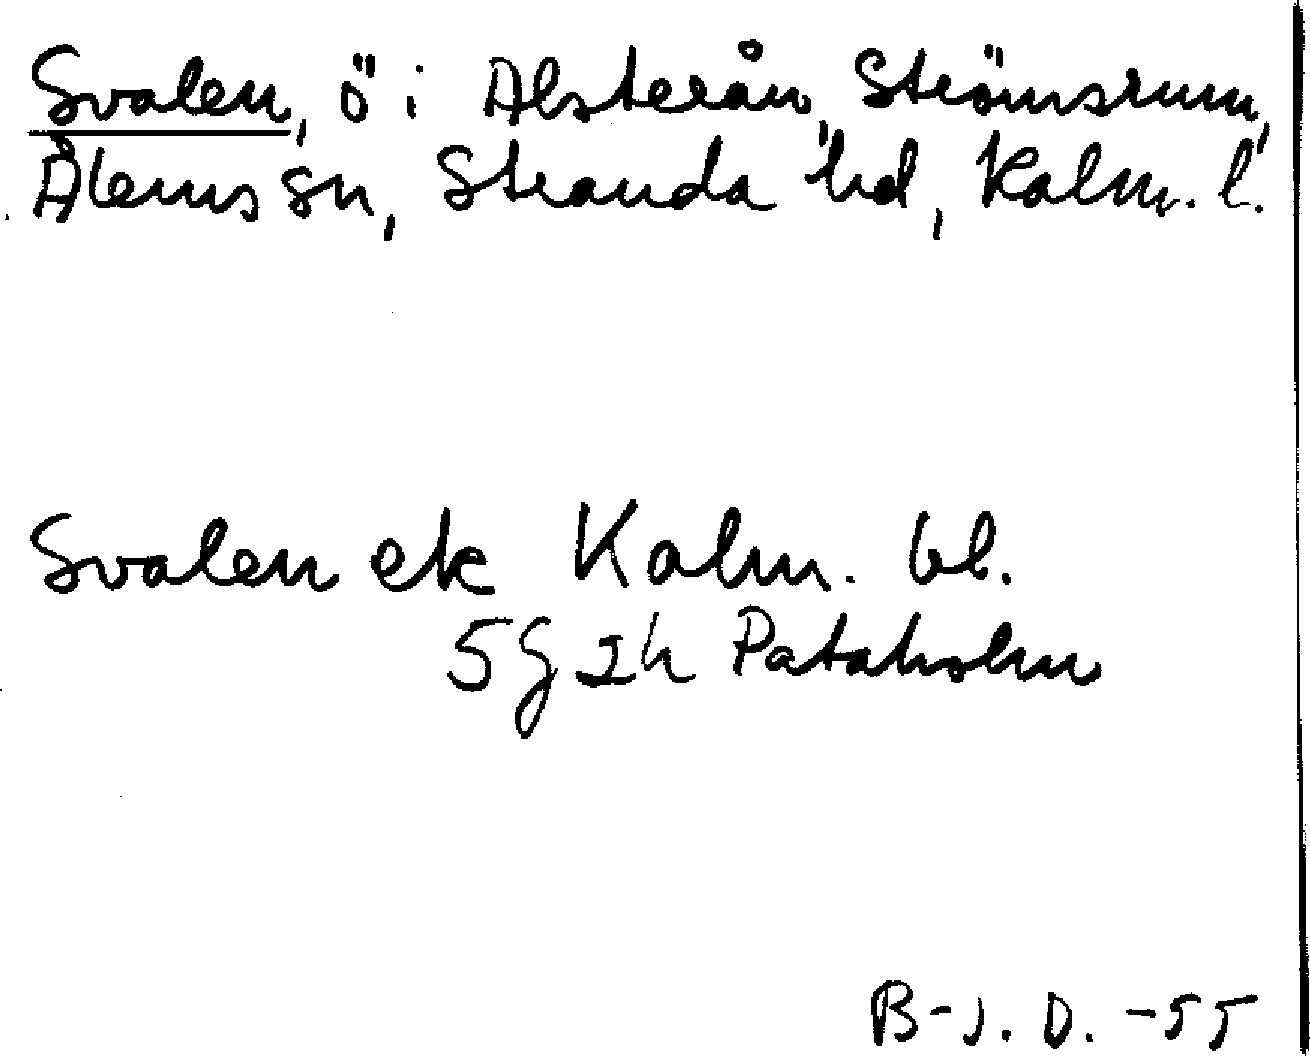 Svalen, ö i Alsterån, Strömsrum,
Ålems sn, Stranda hd, Kalm. l.
Svalen ek Kalm. bl.
5g 2h Pataholm
B-J. D. -55